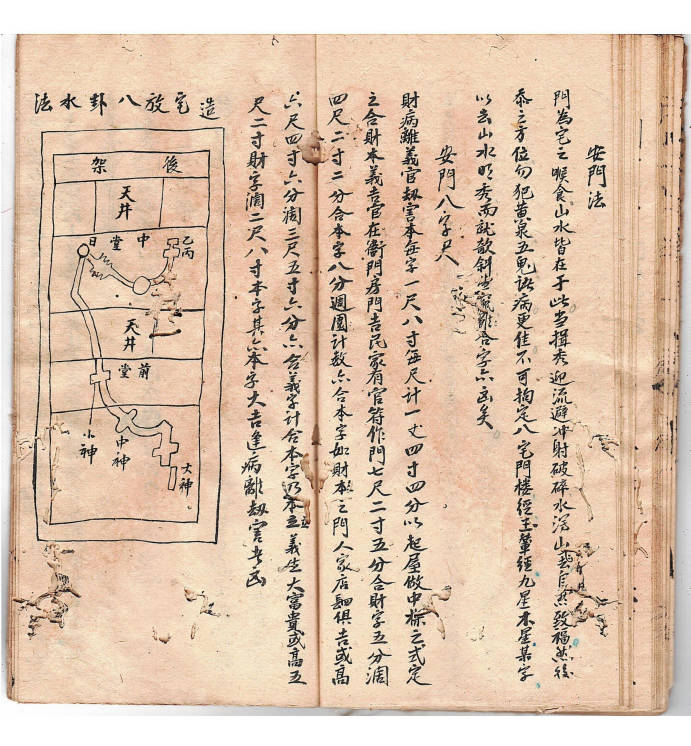 安門法
門為宅之喉食山水皆在于此当揖秀迎流避冲射破碎水深山自然致福然後
泰之方位勿犯黄泉五鬼訛病更佳不可拘定八宅門楼經玉輦經九星木星某字
以去山水明秀而就欹斜虽合字六凶矣
安門八字尺
財病離義官刼害本每字一尺八寸每尺計一丈四寸四分以起屋做中樑之式定
之合財本義吉官在衙門房門吉民家有官符作門七尺二寸五分合財字五分濶
四尺二寸二分合本字八分週圍計数六合本字如財本之門人家店俱吉或高
六尺四寸六分濶三尺五寸六分六合義字計合本字乃本立義生大富貴或高五
尺二寸財字濶二尺八寸本字其六本字大吉逢病離刼害者凶
造宅放八卦水法
後架
天井
中堂
日
乙丙
天井
前堂
小神
中神
大神